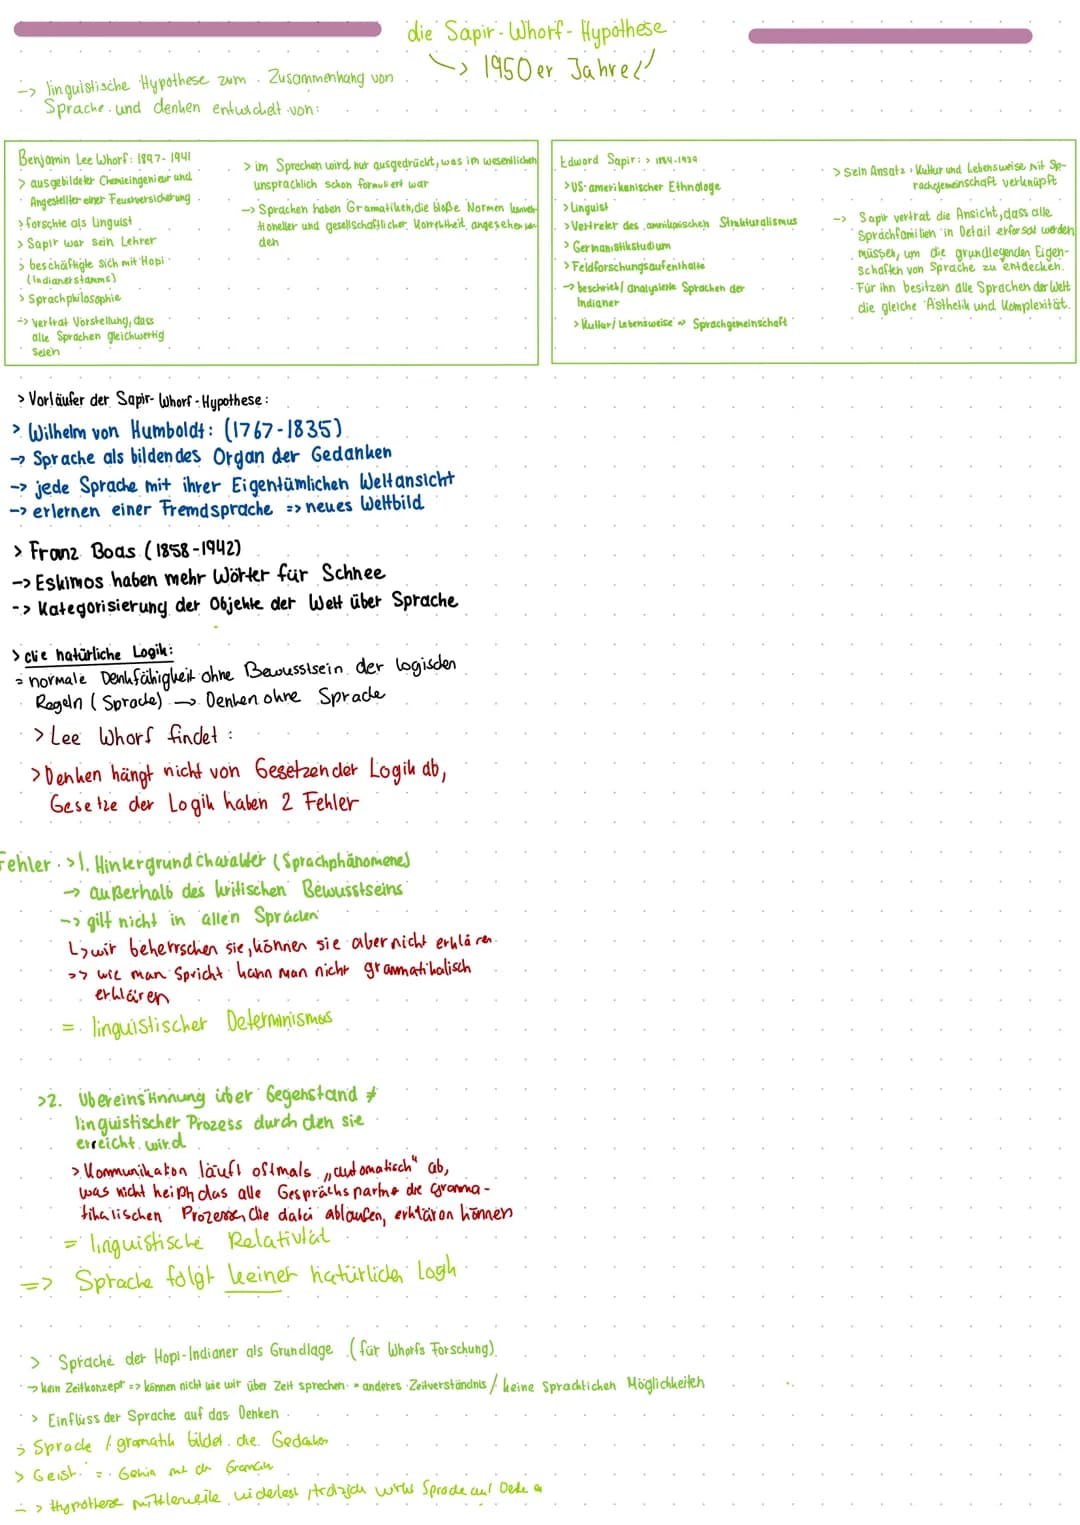 die Sapir-Whorf-Hypothese
-> 1950er Jahre
-> linguistische Hypothese zum Zusammenhang von
Sprache und denken entwickelt von:
Benjamin Lee Whorf: 1897-1941
> ausgebildeter Chemieingenieur und
Angestellter einer Feuerversicherung
> forschte als Linguist
> Sapir war sein Lehrer
> beschäftigte sich mit Hopi
(Indianerstamms)
> Sprachphilosophie
-> vertrat Vorstellung, dass
alle Sprachen gleichwertig
seien
> im Sprechen wird nur ausgedrückt, was im wesentlichen
unsprachlich schon formuliert war
-> Sprachen haben Gramatiken, die bloße Normen konven-
tioneller und gesellschaftlicher Korrektheit angesehen wer
den
Edward Sapir: > 1884-1939
> US-amerikanischer Ethnologe
> Linguist
> Vertreter des amerikanischen Strukturalismus
> Germanistikstudium
> Feldforschungsaufenthalte
-> beschrieb/analysierte Sprachen der
Indianer
> Kultur/Lebensweise => Sprachgemeinschaft
> Sein Ansatz: Kultur und Lebensweise mit Sp-
rachgemeinschaft verknüpft
-> Sapir vertrat die Ansicht, dass alle
Sprachfamilien in Detail erforscht werden
müssen, um die grundlegenden Eigen-
schaften von Sprache zu entdecken.
Für ihn besitzen alle Sprachen der Welt
die gleiche Ästhetik und Komplexität.
> Vorläufer der Sapir-Whorf-Hypothese:
> Wilhelm von Humboldt: (1767-1835)
-> Sprache als bildendes Organ der Gedanken
-> jede Sprache mit ihrer Eigentümlichen Weltansicht
-> erlernen einer Fremdsprache => neues Weltbild
> Franz Boas (1858-1942)
-> Eskimos haben mehr Wörter für Schnee
-> Kategorisierung der Objekte der Welt über Sprache
> die natürliche Logik:
= normale Denkfähigkeit ohne Bewusstsein der logischen
Regeln (Sprache) -> Denken ohne Sprache
> Lee Whorf findet:
> Denken hängt nicht von Gesetzen der Logik ab,
Gesetze der Logik haben 2 Fehler
Fehler > 1. Hintergrundcharakter (Sprachphänomene)
-> außerhalb des kritischen Bewusstseins
-> gilt nicht in allen Sprachen
↳ wir beherrschen sie, können sie aber nicht erklären
>> wie man Spricht kann man nicht grammatikalisch
erklären
= linguistischer Determinismus
> 2. Übereinstimnung über Gegenstand ≠
linguistischer Prozess durch den sie
erreicht wird
> Kommunikation läuft oftmals „automatisch" ab,
was nicht heißt das alle Gesprächspartner die Gramma-
tikalischen Prozesse, die dabei ablaufen, erklären können
= linguistische Relativität
=> Sprache folgt keiner natürlichen Logik
> Sprache der Hopi-Indianer als Grundlage (für Whorfs Forschung)
-> kein Zeitkonzept => können nicht wie wir über Zeit sprechen = anderes Zeitverständnis / keine Sprachlichen Möglichkeiten
> Einfluss der Sprache auf das Denken
> Sprache / gramatik bildet die Gedanken
> Geist = Gehirn mit der
-> Hypothese mittlerweile widerlegt, trotzdem wirkt Sprache auf